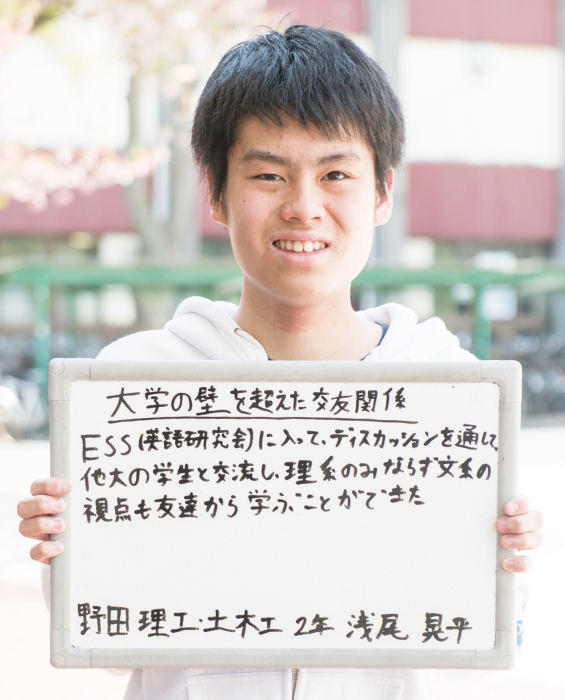 大学の壁を超えた交友関係
ESS(英語研究会)に入って、ディスカッションを通して
他大の学生と交流し、理系のみならず文系の
視点も友達から学ぶことができた
野田 理工・土木工 2年 浅尾 晃平